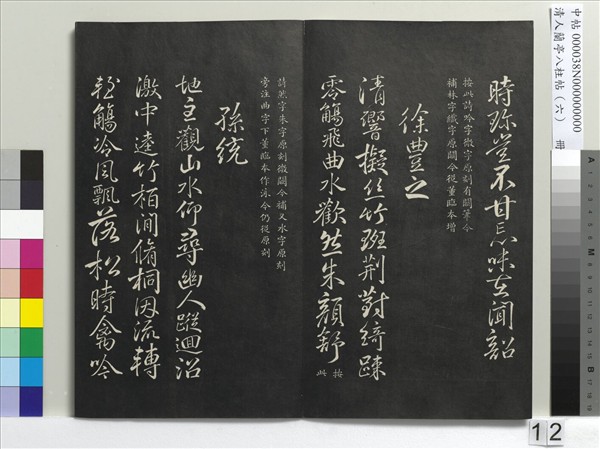 時珍豈不甘忘味在聞韶
按此詩吟字激字原刻有闕筆今
補林字纖字原闕今從董臨本增
徐豐之
清響擬絲竹班荊對綺疎
零觴飛曲水歡然朱顏舒 按此
詩然字朱字原刻微闕今補又水字原刻
旁注曲字下董臨本作泳今仍從原刻
孫統
地主觀山水仰尋幽人蹤迴沼
激中逵竹栢間脩桐因流轉
輕觴冷風飄落松時禽吟
中帖 000038N000000000
清人蘭亭八柱帖(六) 冊
12